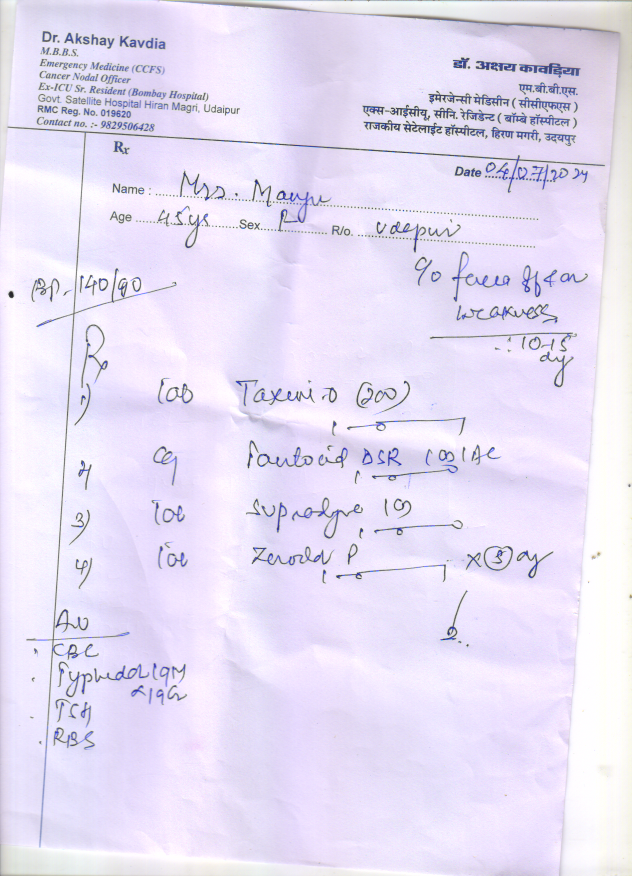 Dr. Akshay Kavdia
M.B.B.S.
Emergency Medicine (CCFS)
Cancer Nodal Officer
Ex-ICU Sr. Resident (Bombay Hospital)
Govt. Satellite Hospital Hiran Magri, Udaipur
RMC Reg. No. 019620
Contact no. :- 9829506428
डॉ. अक्षय कावड़िया
एम.बी.बी.एस.
इमेरजेन्सी मेडिसीन ( सीसीएफएस )
एक्स-आईसीयू, सीनि. रेजिडेन्ट ( बॉम्बे हॉस्पीटल )
राजकीय सेटेलाईट हॉस्पीटल, हिरण मगरी, उदयपुर
Rx
Date 04/07/2024
Name : Mrs. Manju
Age 45ys Sex F R/o. Udaipur
C/o fever
weakness
10-15
dy
BP - 140/90
Rx
1) Tab (200)
1 0 1
2) Pantocid DSR 1 OD AC
1 0 0
3) Tab Supradyn 1 OD
1 0 0
4) Tab Zerodol P x (5) day
1 0 1
Adv
CBC
Typhidot IgM
& IgG
TSH
RBS